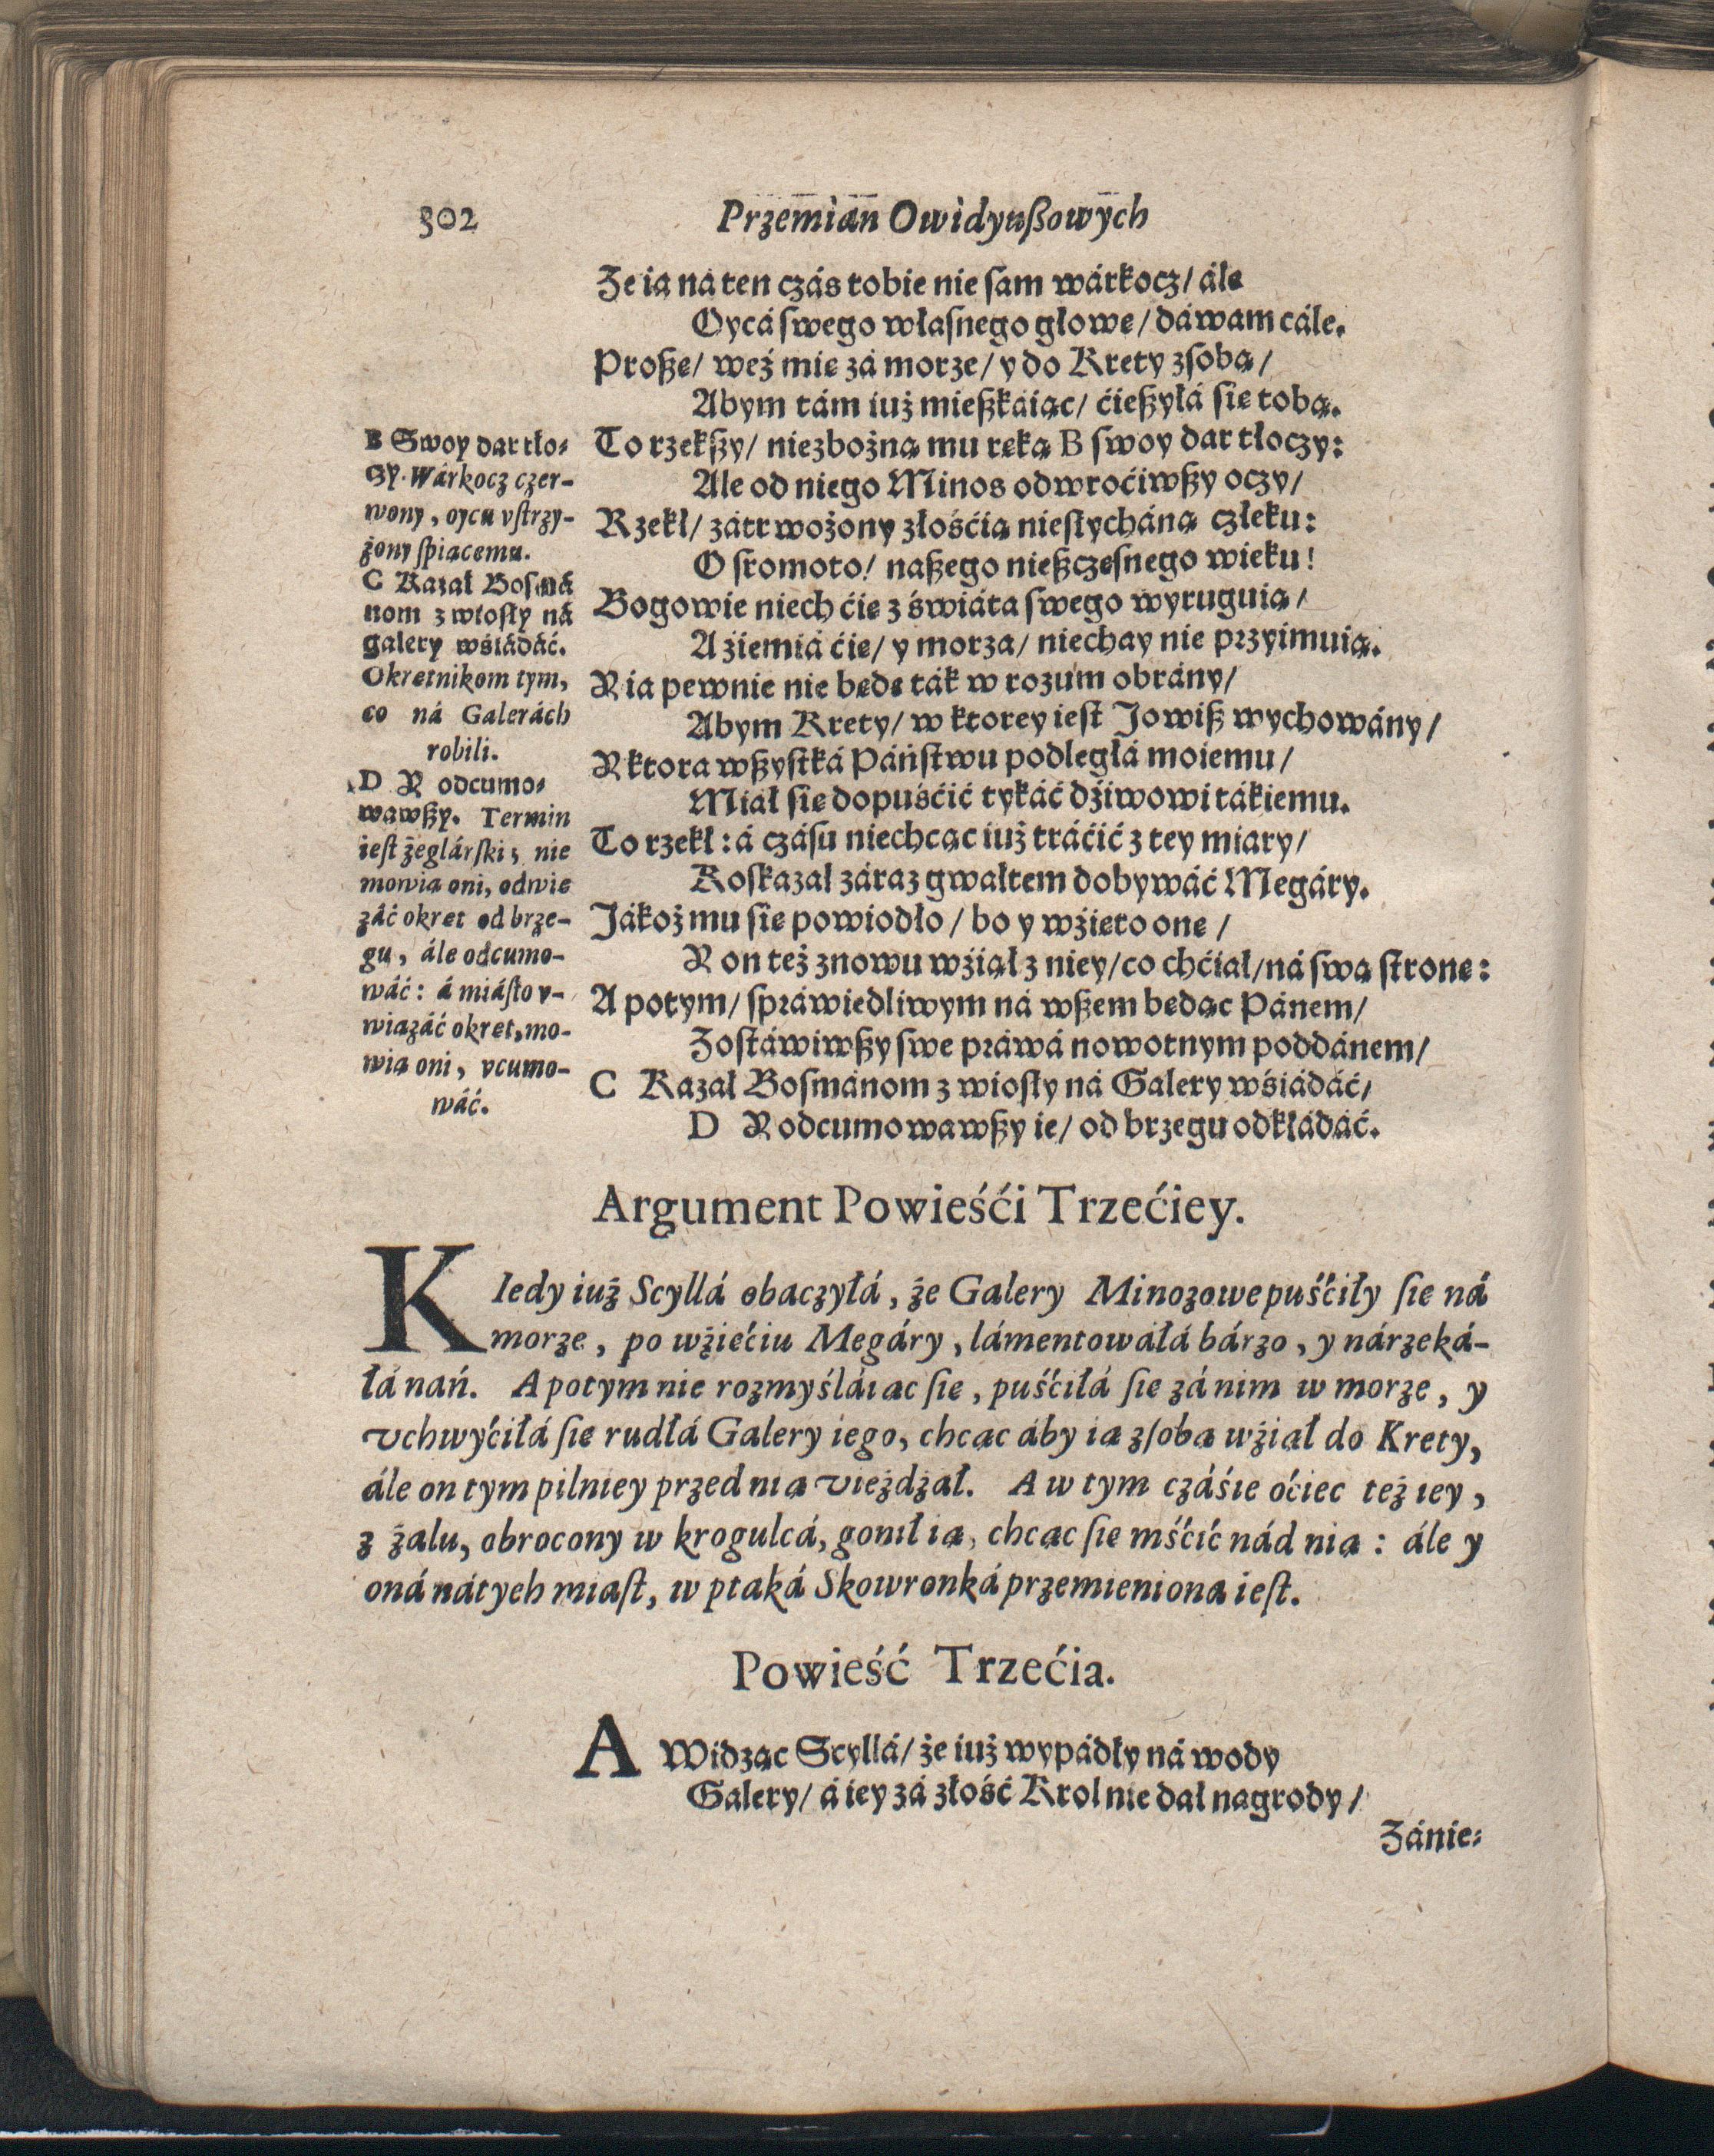 302
Przemian Owidyuszowych
Że ia ná ten czás tobie nie sam wárkocz/ ále
Oycá swego własnego głowę/ dáwam cále.
Proszę/ weź mię zá morze/ y do Krety z sobą/
Abym tám iuż mieszkáiąc/ ćieszyłá się tobą.
To rzekszy/ niezbożną mu ręką B swoy dar tłoczy:
Ale od niego Minos odwroćiwszy oczy/
Rzekł/ zátrwożony złośćią niesłycháną człeku:
O sromoto/ naszego nieszczęsnego wieku!
Bogowie niech ćię z świátá swego wyruguią/
A źiemiá ćię/ y morza/ niechay nie przyimuią.
Y ia pewnie nie będę ták w rozum obrány/
Abym Krety/ w ktorey iest Jowisz wychowány/
Y ktora wszystká Páństwu podległá moiemu/
Miał się dopuśćić tykáć dźiwowi tákiemu.
To rzekł: á czásu niechcąc iuż tráćić z tey miary/
Roskazał záraz gwałtem dobywáć Megáry.
Jákoż mu się powiodło/ bo y wźięto onę/
Y on też znowu wźiął z niey/ co chćiał/ ná swą stronę:
A potym/ spráwiedliwym ná wszem będąc Pánem/
Zostáwiwszy swe práwá nowotnym poddánem/
C Kazał Bosmánom z wiosły ná Galery wśiádáć/
D Y odcumowawszy ie/ od brzegu odkłádáć.
B Swoy dar tło-
czy. Wárkocz czer-
wony, oycu vstrzy-
żony spiącemu.
C Kazał Bosmá
nom z wiosły ná
galery wśiádáć.
Okrętnikom tym,
co ná Galerách
robili.
D Y odcumo-
wawszy. Termin
iest żeglárski, nie
mowią oni, odwię
záć okręt od brze-
gu, ále odcumo-
wáć: á miásto v-
wiązáć okręt, mo-
wią oni, vcumo-
wáć.
Argument Powieśći Trzećiey.
KIedy iuż Scyllá obaczyłá, że Galery Minozowe puśćiły się ná
morze, po wźięćiu Megáry, lámentowáłá bárzo, y nárzeká-
łá nań. A potym nie rozmyśláiąc się, puśćiłá się zá nim w morze, y
vchwyćiłá się rudłá Galery iego, chcąc áby ią z sobą wźiął do Krety,
ále on tym pilniey przed nią vieżdżał. A w tym czáśie oćiec też iey,
z żalu, obrocony w krogulcá, gonił ią, chcąc się mśćić nád nią: ále y
oná nátych miast, w ptaká Skowronká przemieniona iest.
Powieść Trzećia.
A Widząc Scyllá/ że iuż wypádły ná wody
Galery/ á iey zá złość Krol nie dał nagrody/
Zánie-